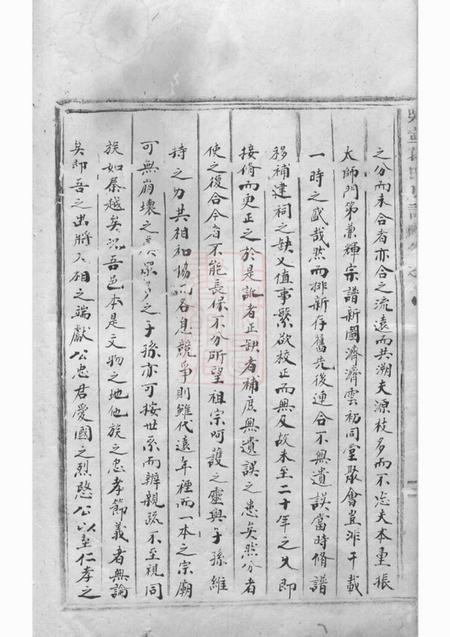 之分而未合者亦合之流遠而共溯夫源枝多而不忘夫本重振
太師門第兼輝宗譜新圖濟濟雲初同堂聚會豈非千載
一時之盛哉然而排新存舊先後連合不無遺誤當時脩譜
移補建祠之缺又值事繁欲校正而無及故未至二十年之久即
接脩而更正之於是訛者正缺者補庶無遺誤之患矣然分者
使之復合合者不能長保不分所望祖宗呵護之靈與子孫維
持之力共相和協而各息競爭則雖代遠年裡而一本之宗廟
可無崩壞之之子孫亦可按世系而辨親疏不至視同
族如秦越矣況吾邑本是文物之地他族之忠孝節義者無論
矣即吾之出將入相之端獻公忠君愛國之烈愍公以至仁孝之